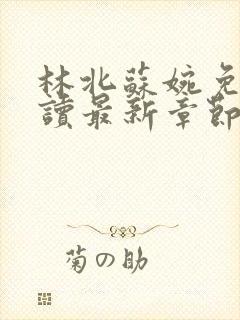 林北蘇婉免
讀最新章節
菊の助